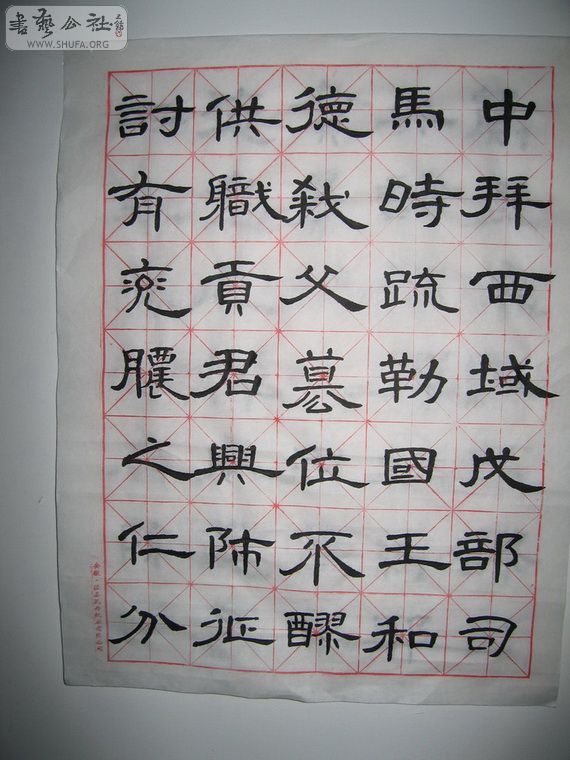 中拜西域戊部司
馬時疏勒國王和
德殺父墓位不醪
供職貢君興師征
討有兖膿之仁分
書藝公社
WWW.SHUFA.ORG